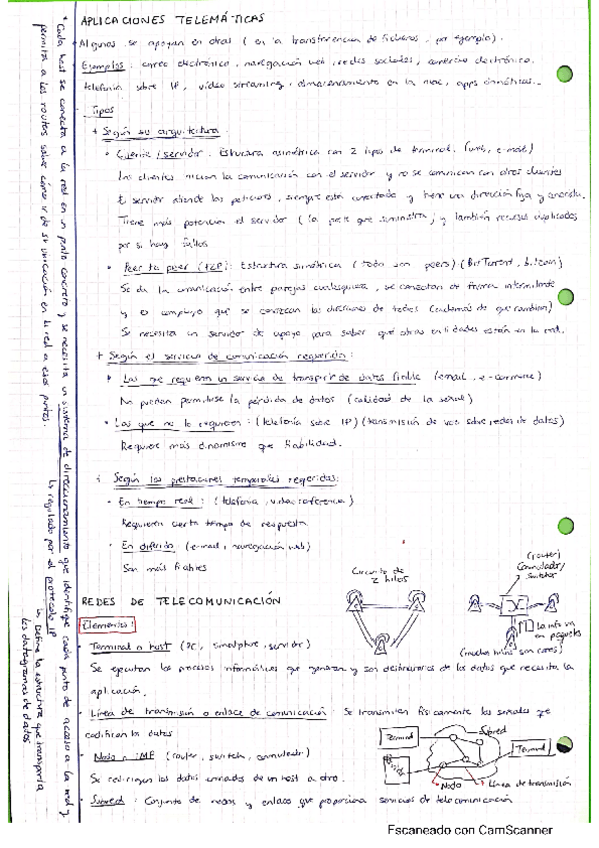 APLICACIONES TELEMÁTICAS
Algunas se apoyan en otras (en la transferencia de ficheros, por ejemplo).
Ejemplos: correo electrónico, navegación web, redes sociales, comercio electrónico,
telefonía sobre IP, video streaming, almacenamiento en la nube, apps domóticas...
Tipos
+ Según su arquitectura:
• Cliente/servidor: Estructura asimétrica con 2 tipos de terminal. (web, e-mail)
Los clientes inician la comunicación con el servidor y no se comunican con otros clientes
El servidor atiende las peticiones, siempre está conectado y tiene una dirección fija y
Tiene más potencia el servidor (la parte que suministra) y también recursos duplicados
por si hay fallos
• Peer to peer (P2P): Estructura simétrica (todos son peers) (BitTorrent, bitcoin)
Se da la comunicación entre parejas cualesquiera, se conectan de forma intermitente
y es complejo que se conozcan las direcciones de todos (además de que cambian)
Se necesita un servidor de apoyo para saber qué otras entidades están en la red.
+ Según el servicio de comunicación requerido:
• Las que requieren un servicio de transporte de datos fiable (email, e-commerce)
No pueden permitirse la pérdida de datos (calidad de la señal)
• Las que no lo requieren: (telefonía sobre IP) (transmisión de voz sobre redes de datos)
Requiere más dinamismo que fiabilidad.
Según las prestaciones temporales requeridas:
• En tiempo real: (telefonía, videoconferencia)
Requieren cierto tiempo de respuesta
• En diferido (e-mail, navegación web)
Son más fiables
Circuito de
2 hilos
(router)
Conmutador/
switcher
la info va
en paquetes
REDES DE TELECOMUNICACIÓN
Elementos:
• Terminal o host (PC, smartphone, servidor)
Se ejecutan los procesos informáticos que generan y son destinatarios de los datos que necesita la
aplicación.
• Línea de transmisión o enlace de comunicación: Se transmiten físicamente las señales que
codifican los datos
• Nodo o IMP (router, switch, conmutador)
Se redirigen los datos enviados de un host a otro.
• Subred: Conjunto de nodos y enlaces que proporciona servicios de telecomunicación
Terminal
Subred
Terminal
Nodo
Línea de transmisión
* Cada host se conecta a la red en un punto concreto y se necesita un sistema de direccionamiento que identifique cada punto de acceso a la red y
permita a los routers saber cómo ir de su ubicación en la red a esos puntos.
↳ regulado por el protocolo IP
↳ Define la estructura que transporta
los datagramas de datos
Escaneado con CamScanner